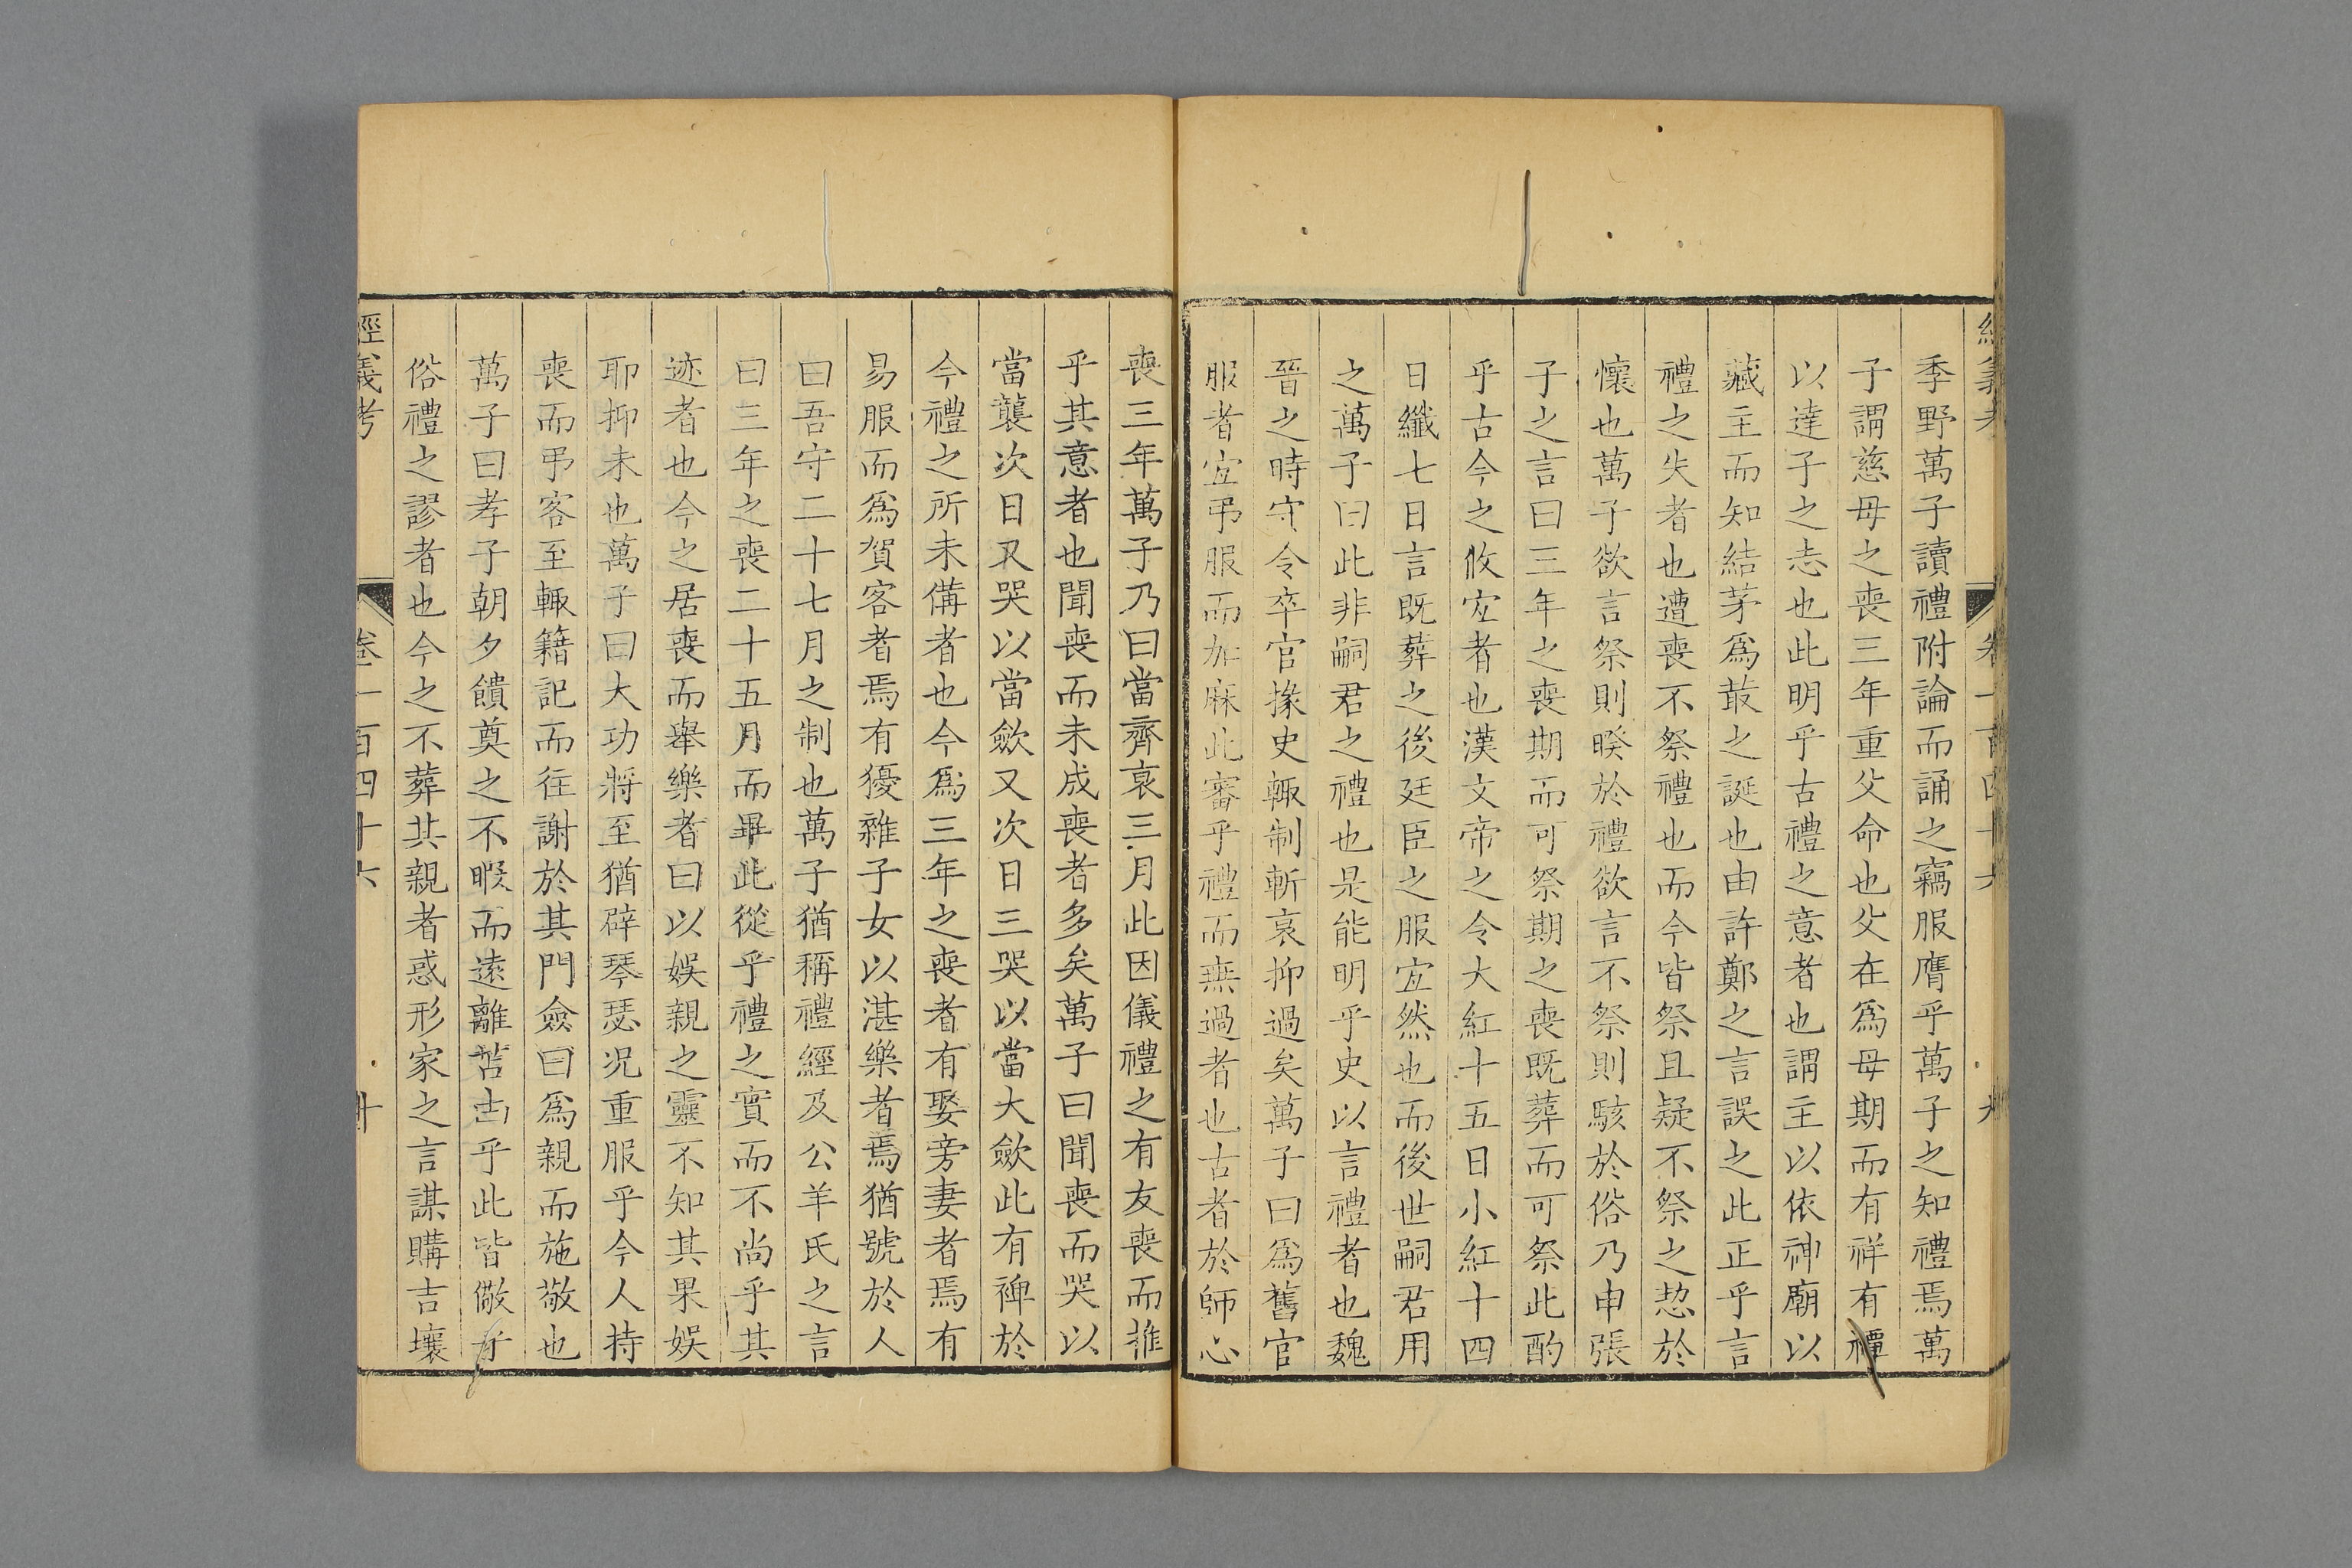 經義考
卷一百四十六
九
季野萬子讀禮附論而誦之竊服膺乎萬子之知禮焉萬
子謂慈母之喪三年重父命也父在爲母期而有祥有禫
以達子之志也此明乎古禮之意者也謂主以依神廟以
藏主而知結茅爲菆之誕也由許鄭之言誤之此正乎言
禮之失者也遭喪不祭禮也而今皆祭且疑不祭之愸於
懷也萬子欲言祭則暌於禮欲言不祭則駭於俗乃申張
子之言曰三年之喪期而可祭期之喪既葬而可祭此酌
乎古今之攸宜者也漢文帝之令大紅十五日小紅十四
日纖七日言既葬之後廷臣之服宜然也而後世嗣君用
之萬子曰此非嗣君之禮也是能明乎史以言禮者也魏
晉之時守令卒官掾史輒制斬哀抑過矣萬子曰爲舊官
服者宜弔服而加麻此審乎禮而無過者也古者於師心
喪三年萬子乃曰當齊哀三月此因儀禮之有友喪而推
乎其意者也聞喪而未成喪者多矣萬子曰聞喪而哭以
當襲次日又哭以當斂又次日三哭以當大斂此有裨於
今禮之所未備者也今爲三年之喪者有娶旁妻者焉有
易服而爲賀客者焉有獶雜子女以湛樂者焉猶號於人
曰吾守二十七月之制也萬子猶稱禮經及公羊氏之言
曰三年之喪二十五月而畢此從乎禮之實而不尚乎其
迹者也今之居喪而舉樂者曰以娛親之靈不知其果娛
耶抑未也萬子曰大功將至猶辟琴瑟况重服乎今人持
喪而弔客至輒籍記而往謝於其門僉曰爲親而施敬也
萬子曰孝子朝夕饋奠之不暇而遠離苫凷乎此皆儆乎
俗禮之謬者也今之不葬其親者惑形家之言謀購吉壤
經義考
卷一百四十六
十